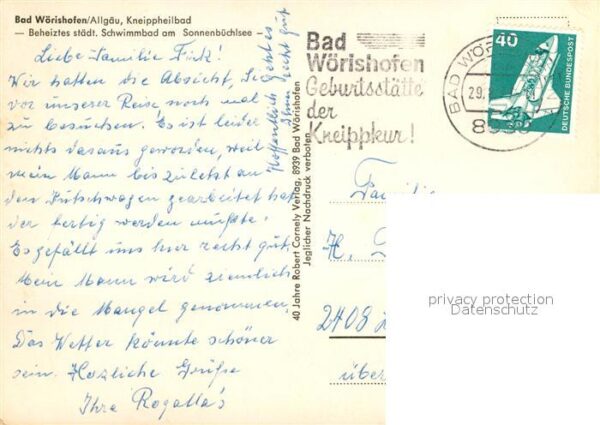 Bad Wörishofen/Allgäu, Kneippheilbad
— Beheiztes städt. Schwimmbad am Sonnenbüchlsee —
Liebe Familie Fritz!
Wir hatten die Absicht, Sie
vor unserer Reise noch mal
zu besuchen. Es ist leider
nichts daraus geworden, weil
mein Mann bis zuletzt an
den Kutschwagen gearbeitet hat,
der fertig werden mußte.
Es gefällt uns hier recht gut.
Mein Mann wird ziemlich
in die Mangel genommen.
Das Wetter könnte schöner
sein. Herzliche Grüße
Ihre Rogalla's
Hoffentlich geht es
Ihnen recht gut
40 Jahre Robert Cornely Verlag, 8939 Bad Wörishofen
Jeglicher Nachdruck verboten
Bad
Wörishofen
Geburtsstätte
der
Kneippkur!
BAD WÖR
29.
893
40
DEUTSCHE BUNDESPOST
Familie
H.
2408
über
privacy protection
Datenschutz